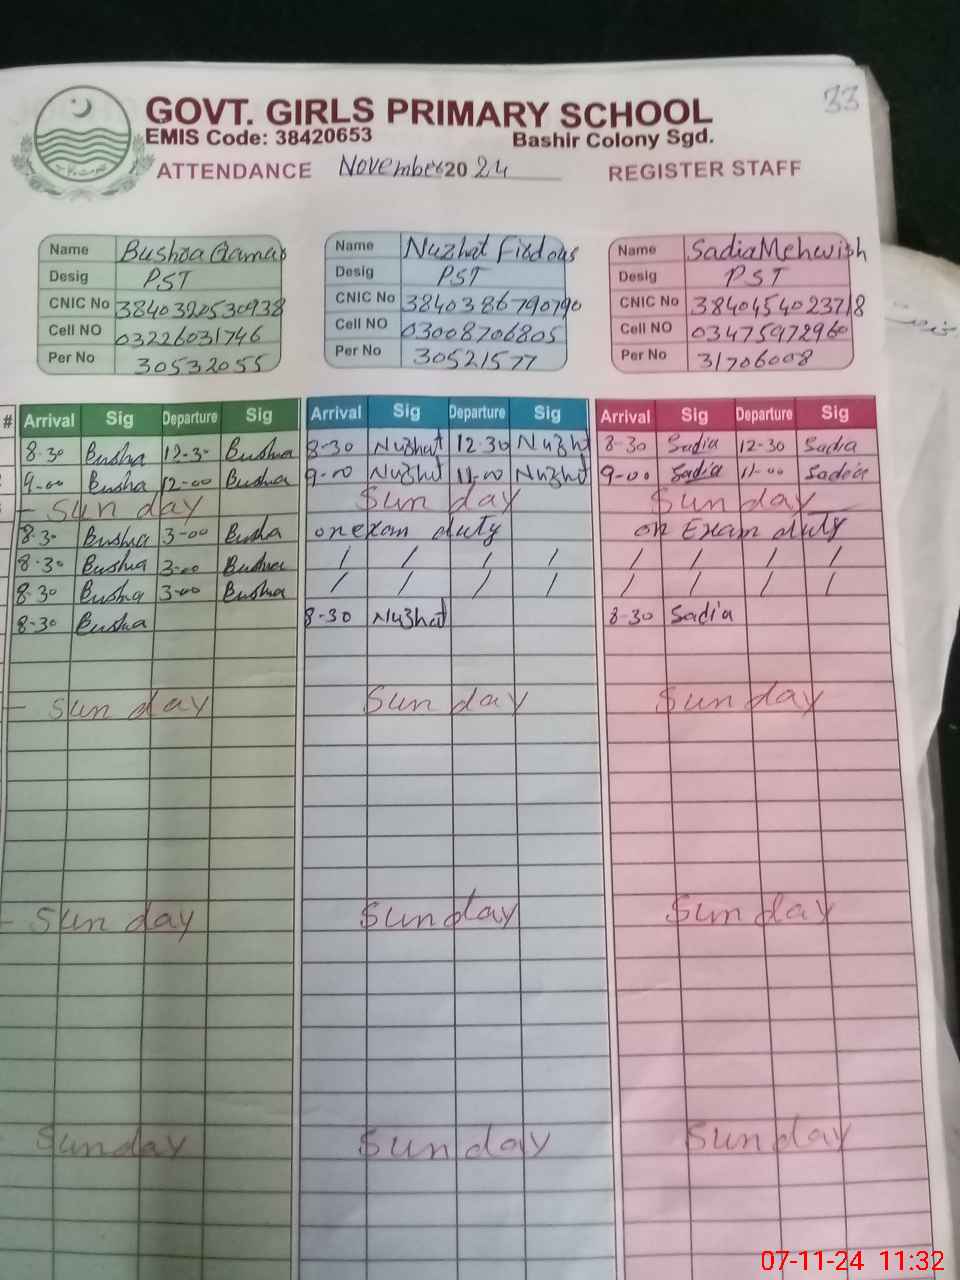 33
GOVT. GIRLS PRIMARY SCHOOL
EMIS Code: 38420653 Bashir Colony Sgd.
ATTENDANCE November 2024 REGISTER STAFF
Name Bushra Qamar Name Nuzhat Firdous Name Sadia Mehwish
Desig PST Desig PST Desig PST
CNIC No 3840320530938 CNIC No 3840386790790 CNIC No 3840454023718
Cell NO 03226031746 Cell NO 03008706805 Cell NO 03475972960
Per No 30532055 Per No 30521577 Per No 31706008
# Arrival Sig Departure Sig Arrival Sig Departure Sig Arrival Sig Departure Sig
8-30 Bushra 12-30 Bushra 8-30 Nuzhat 12-30 Nuzht 8-30 Sadia 12-30 Sadia
9-00 Bushra 12-00 Bushra 9-00 Nuzht 11-00 Nuzhat 9-00 Sadia 11-00 Sadia
- Sunday Sunday Sunday
8-30 Bushra 3-00 Bushra on exam duty on Exam duty
8-30 Bushra 3-00 Bushra / / / / / / / /
8-30 Bushra 3-00 Bushra / / / / / / / /
8-30 Bushra 8-30 Nuzhat 8-30 Sadia
- Sunday Sunday Sunday
- Sunday Sunday Sunday
Sunday Sunday Sunday
07-11-24 11:32